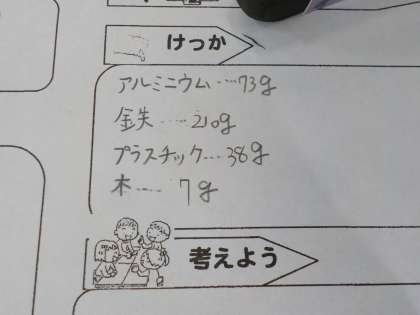 けっか
アルミニウム……73g
鉄……210g
プラスチック……38g
木……7g
考えよう